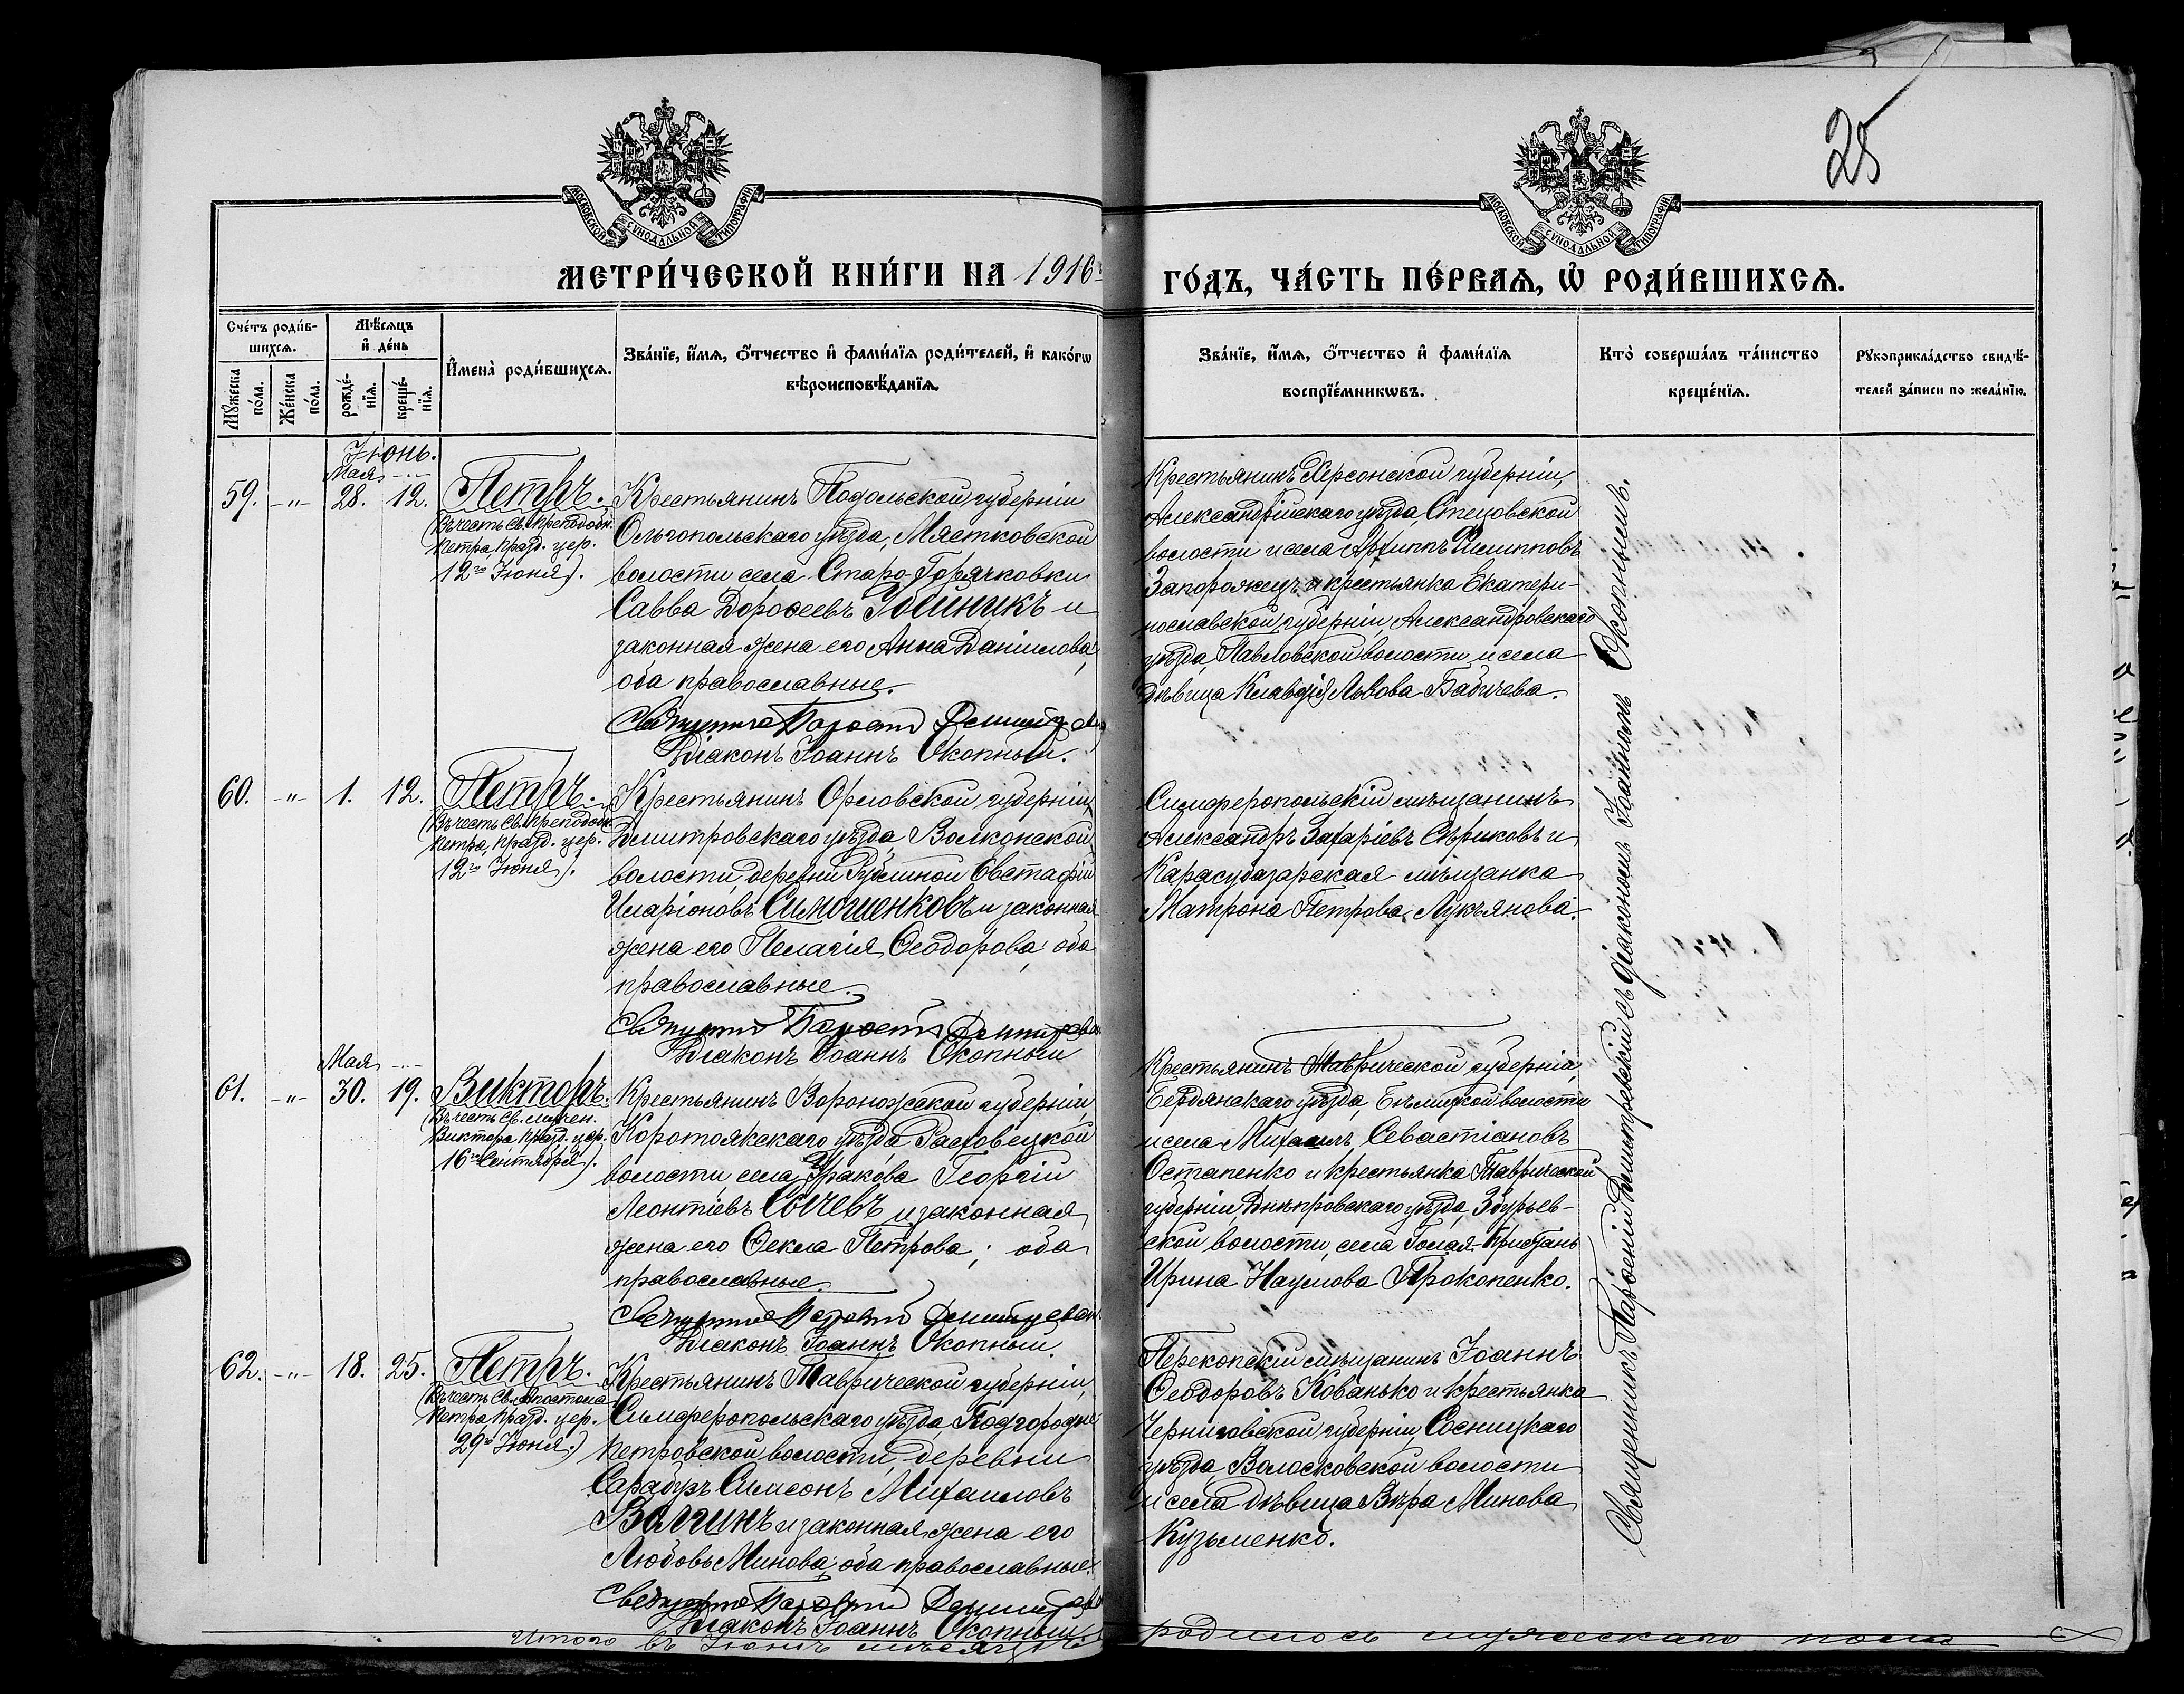 25
МОСКОВСКОЙ СѴНОДАЛЬНОЙ ТИПОГРАФІИ
МОСКОВСКОЙ СѴНОДАЛЬНОЙ ТИПОГРАФІИ
МЕТРИ́ЧЕСКОЙ КНИ́ГИ НА 1916й
ГО́ДЪ, ЧА́СТЬ ПЕ́РВАѦ, Ѡ҆ РОДИ́ВШИХСѦ.
Сче́тъ роди́в-
шихсѧ.
Мꙋ́жеска
по́ла.
Же́нска
по́ла.
Мѣ́сѧцъ
и҆ де́нь
рожде́-
нїѧ.
креще́-
нїѧ.
И҆мена̀ роди́вшихсѧ.
Зва́нїе, и҆́мѧ, ѻ҆́тчество и҆ фами́лїѧ роди́телей, и҆ како́гѡ
вѣроисповѣ́данїѧ.
Зва́нїе, и҆́мѧ, ѻ҆́тчество и҆ фами́лїѧ
воспрїе́мникѡвъ.
Кто̀ соверша́лъ та́инство
креще́нїѧ.
Рꙋкоприкла́дство свидѣ́-
телей за́писи по жела́нїю.
Іюнь.
Мая -"-
59. -"- 28. 12. Петръ.
(Въ честь Св. Преподобн.
Петра, празд. цер.
12го Іюня).
Крестьянинъ Подольской губерніи
Ольгопольскаго уѣзда, Мястковской
волости села Старо-Горячковки
Савва Дороѳеевъ Убійникъ и
законная жена его Анна Даніилова,
оба православные.
Діаконъ Іоаннъ Окопный.
Крестьянинъ Херсонской губерніи,
Александрійскаго уѣзда, Стецовской
волости и села Архиппъ Филипповъ
Запорожецъ и крестьянка Екатери-
нославской губерніи, Александровскаго
уѣзда, Павловской волости и села
дѣвица Клавдія Львова Бабичева.
60. -"- 1. 12. Петръ.
(Въ честь Св. Преподобн.
Петра, празд. цер.
12го Іюня).
Крестьянинъ Орловской губерніи,
Дмитровскаго уѣзда, Волконской
волости, деревни Рублиной Евстафій
Иларіоновъ Симошенковъ и законная
жена его Пелагія Ѳеодорова; оба
православные.
Діаконъ Іоаннъ Окопный
Симферопольскій мѣщанинъ
Александръ Захаріевъ Сѣриковъ и
Карасубазарская мѣщанка
Матрона Петрова Лукьянова.
Мая -"-
61. -"- 30. 19. Викторъ.
(Въ честь Св. мучен.
Виктора празд. цер.
16го Сентября).
Крестьянинъ Воронежской губерніи,
Коротоякскаго уѣзда, Расховецкой
волости, села Уракова Георгій
Леонтіевъ Сычевъ и законная
жена его Ѳекла Петрова; оба
православные.
Діаконъ Іоаннъ Окопный.
Крестьянинъ Таврической губерніи,
Бердянскаго уѣзда Бѣлицкой волости
и села Михаилъ Севастіановъ
Остапенко и крестьянка Таврической
губерніи, Днѣпровскаго уѣзда, Збурьев-
ской волости, села Голая-Пристань
Ирина Наумова Прокопенко.
62. -"- 18. 25. Петръ.
(Въ честь Св. Апостола
Петра празд. цер.
29го Іюня.)
Крестьянинъ Таврической губерніи,
Симферопольскаго уѣзда, Подгородне-
Петровской волости, деревни
Сарабузъ Симеонъ Михаиловъ
Волгинъ и законная жена его
Любовь Минова; оба православные.
Діаконъ Іоаннъ Окопный
Перекопскій мѣщанинъ Іоаннъ
Ѳеодоровъ Кованько и крестьянка
Черниговской губерніи, Сосницкаго
уѣзда, Волосковской волости
и села дѣвица Вѣра Минова
Кузьменко.
Священникъ Парѳеній Димитревскій съ діакономъ Іоанномъ Окопнымъ.
Итого въ Іюнѣ мѣсяцѣ родилось мужескаго пола